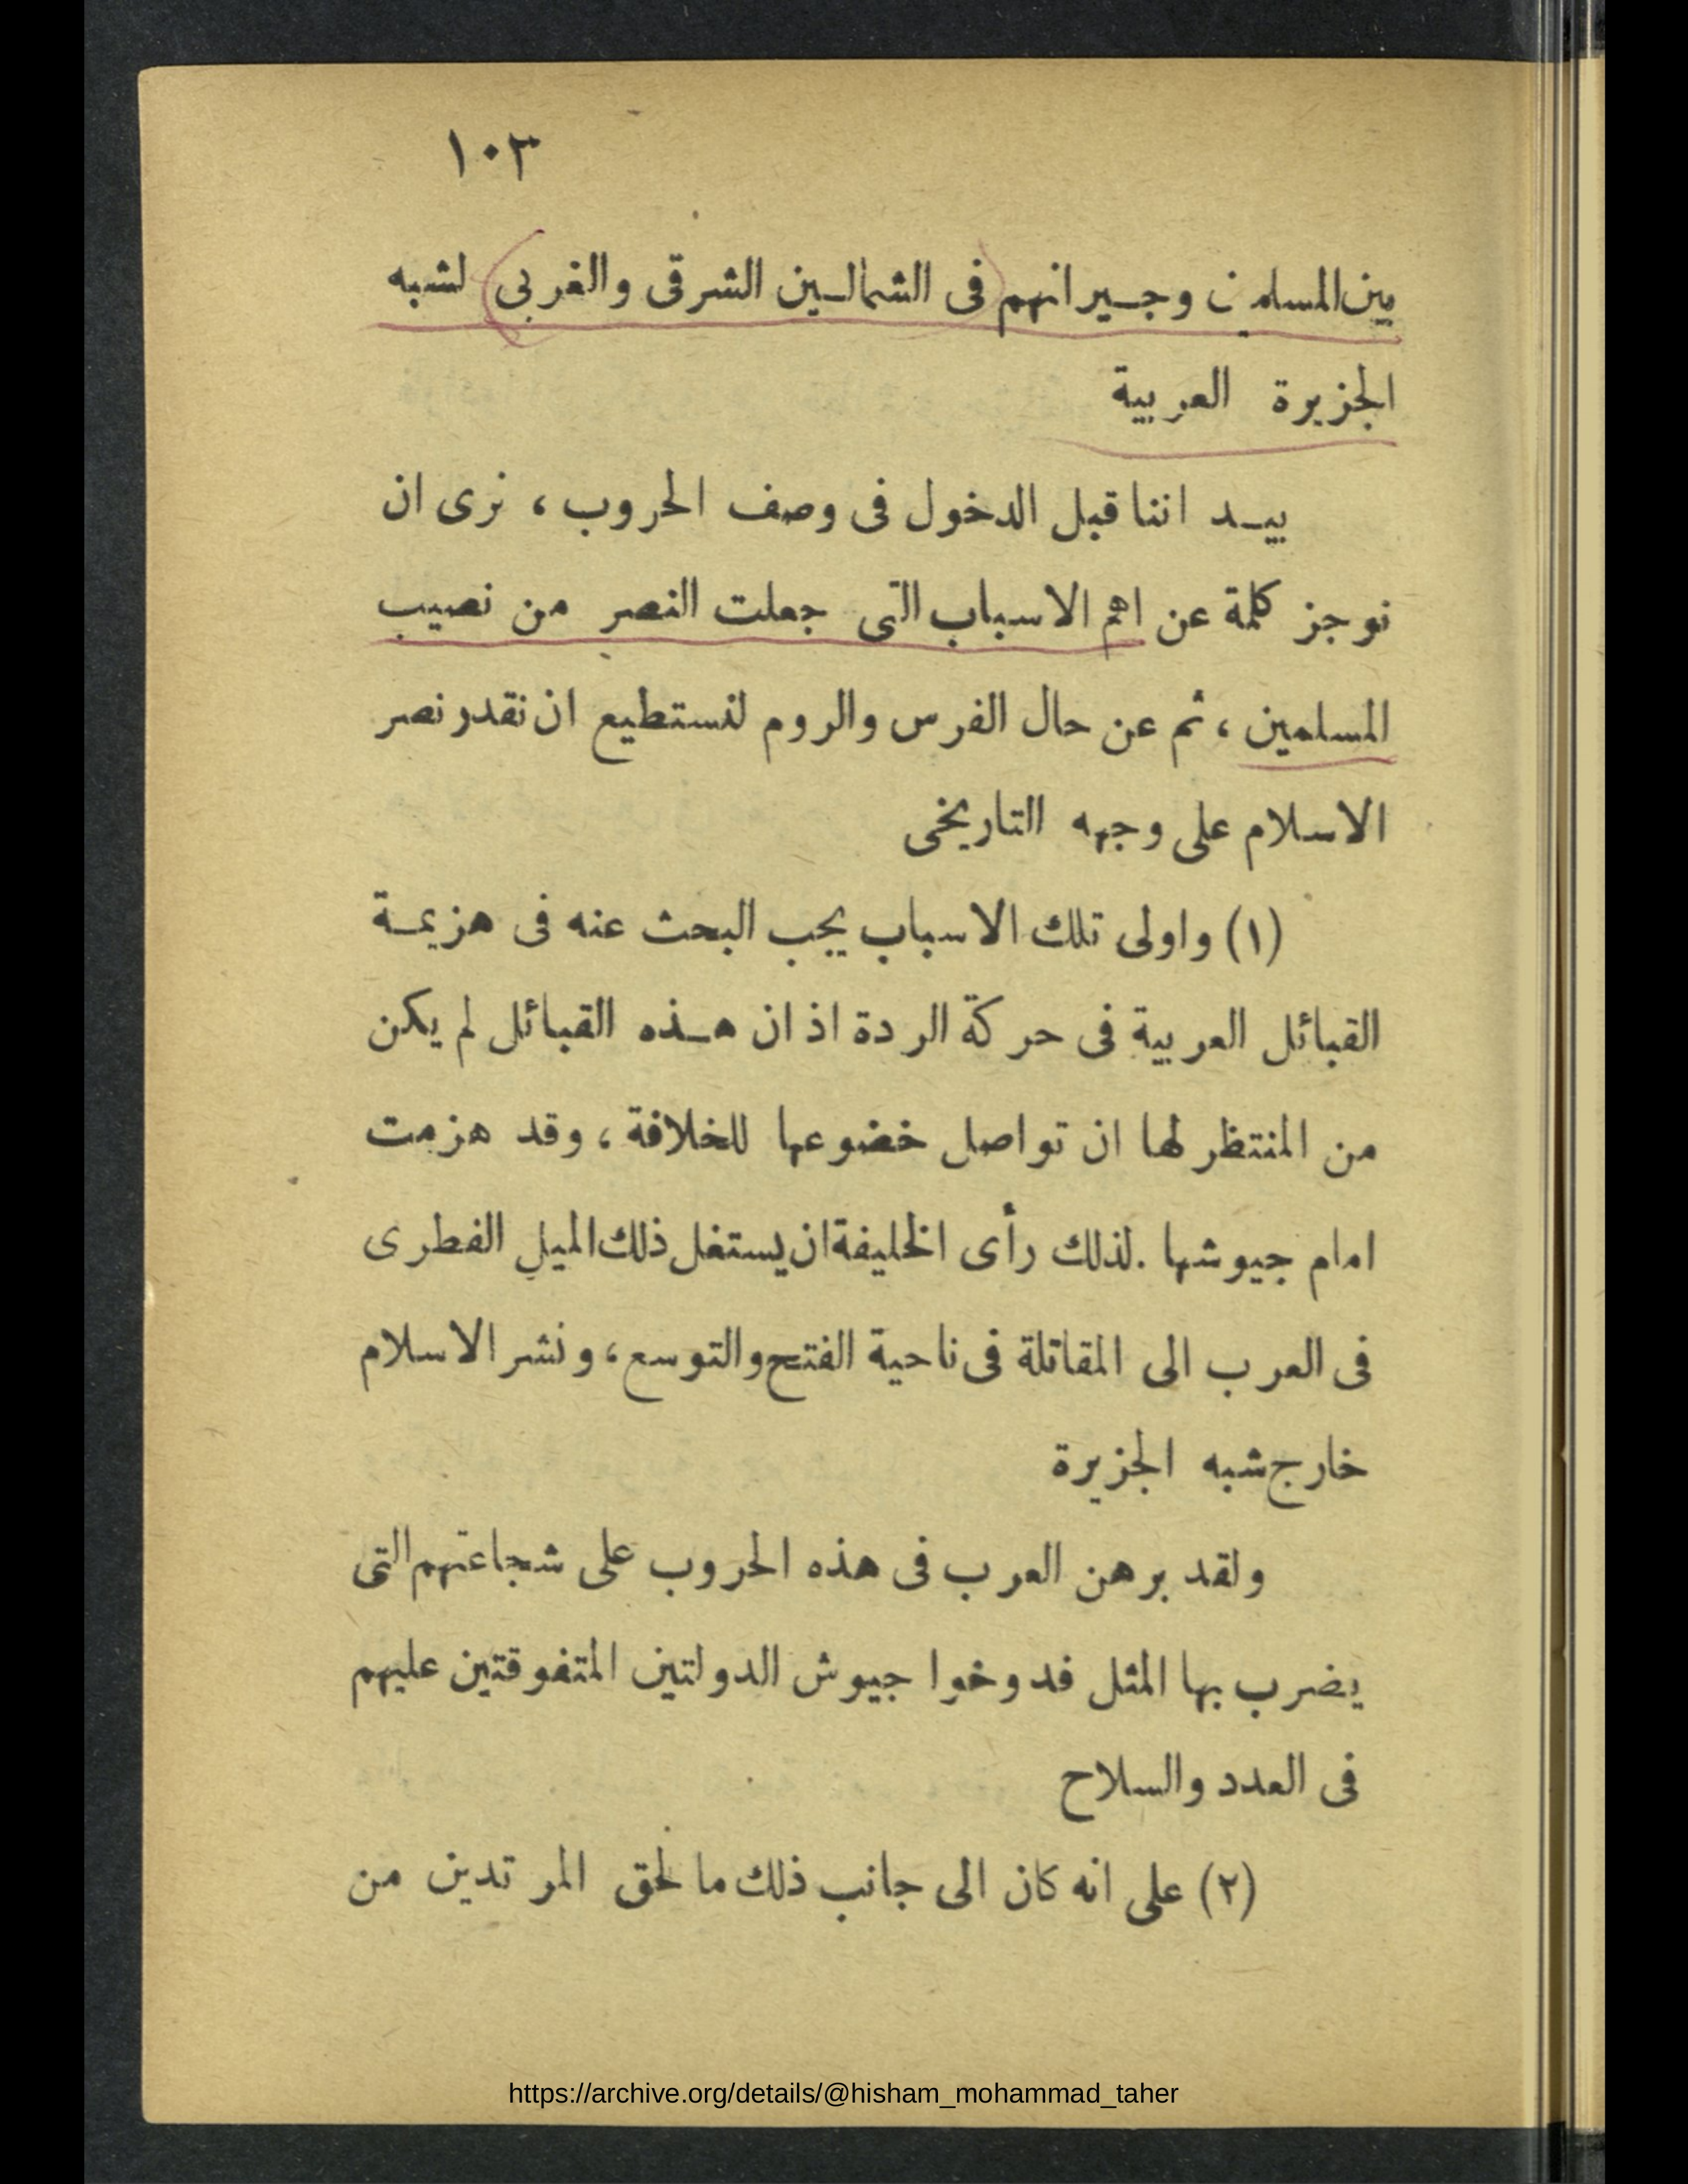 ١٠٣
بين المسلمين وجيرانهم في الشمالين الشرقى والغربى لشبه
الجزيرة العربية
بيد اننا قبل الدخول فى وصف الحروب ، نرى ان
نوجز كلمة عن اهم الاسباب التى جعلت النصر من نصيب
المسلمين ، ثم عن حال الفرس والروم لنستطيع ان نقدر نصر
الاسلام على وجهه التاريخى
(١) واولى تلك الاسباب يجب البحث عنه فى هزيمة
القبائل العربية فى حركة الردة اذ ان هذه القبائل لم يكن
من المنتظر لها ان تواصل خضوعها للخلافة ، وقد هزمت
امام جيوشها . لذلك رأى الخليفة ان يستغل ذلك الميل الفطرى
فى العرب الى المقاتلة فى ناحية الفتح والتوسع ، ونشر الاسلام
خارج شبه الجزيرة
ولقد برهن العرب فى هذه الحروب على شجاعتهم التى
يضرب بها المثل فدوخوا جيوش الدولتين المتفوقتين عليهم
فى العدد والسلاح
(٢) على انه كان الى جانب ذلك ما لحق المرتدين من
https://archive.org/details/@hisham_mohammad_taher